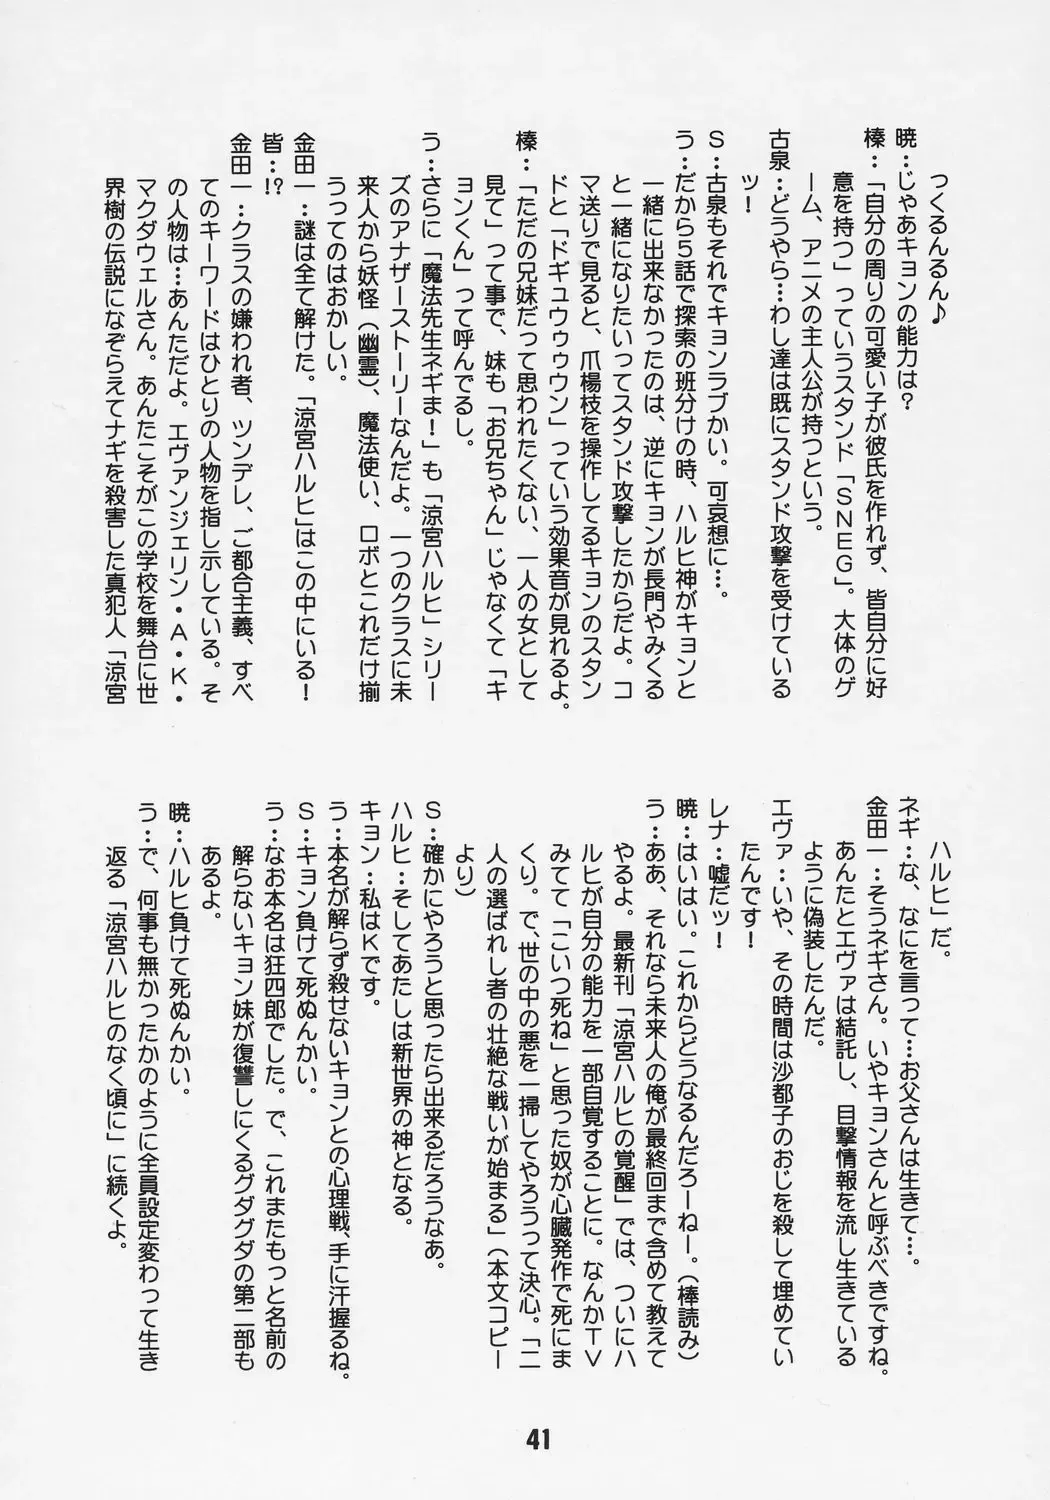 つくるんるん♪
暁：じゃあキョンの能力は？
榛：「自分の周りの可愛い子が彼氏を作れず、皆自分に好
意を持つ」っていうスタンド「ＳＮＥＧ」。大体のゲ
ーム、アニメの主人公が持つという。
古泉：どうやら…わし達は既にスタンド攻撃を受けている
ッ！
Ｓ：古泉もそれでキョンラブかい。可哀想に…。
う：だから５話で探索の班分けの時、ハルヒ神がキョンと
一緒に出来なかったのは、逆にキョンが長門やみくる
と一緒になりたいってスタンド攻撃したからだよ。コ
マ送りで見ると、爪楊枝を操作してるキョンのスタン
ドと「ドギュウゥゥウン」っていう効果音が見れるよ。
榛：「ただの兄妹だって思われたくない、一人の女として
見て」って事で、妹も「お兄ちゃん」じゃなくて「キ
ョンくん」って呼んでるし。
う：さらに「魔法先生ネギま！」も「涼宮ハルヒ」シリー
ズのアナザーストーリーなんだよ。一つのクラスに未
来人から妖怪（幽霊）、魔法使い、ロボとこれだけ揃
うってのはおかしい。
金田一：謎は全て解けた。「涼宮ハルヒ」はこの中にいる！
皆：!?
金田一：クラスの嫌われ者、ツンデレ、ご都合主義、すべ
てのキーワードはひとりの人物を指し示している。そ
の人物は…あんただよ。エヴァンジェリン・Ａ・Ｋ・
マクダウェルさん。あんたこそがこの学校を舞台に世
界樹の伝説になぞらえてナギを殺害した真犯人「涼宮
ハルヒ」だ。
ネギ：な、なにを言って…お父さんは生きて…。
金田一：そうネギさん。いやキョンさんと呼ぶべきですね。
あんたとエヴァは結託し、目撃情報を流し生きている
ように偽装したんだ。
エヴァ：いや、その時間は沙都子のおじを殺して埋めてい
たんです！
レナ：嘘だッ！
暁：はいはい。これからどうなるんだろーねー。（棒読み）
う：ああ、それなら未来人の俺が最終回まで含めて教えて
やるよ。最新刊「涼宮ハルヒの覚醒」では、ついにハ
ルヒが自分の能力を一部自覚することに。なんかＴＶ
みてて「こいつ死ね」と思った奴が心臓発作で死にま
くり。で、世の中の悪を一掃してやろうって決心。「二
人の選ばれし者の壮絶な戦いが始まる」（本文コピー
より）
Ｓ：確かにやろうと思ったら出来るだろうなあ。
ハルヒ：そしてあたしは新世界の神となる。
キョン：私はＫです。
う：本名が解らず殺せないキョンとの心理戦、手に汗握るね。
Ｓ：キョン負けて死ぬんかい。
う：なお本名は狂四郎でした。で、これまたもっと名前の
解らないキョン妹が復讐しにくるグダグダの第二部も
あるよ。
暁：ハルヒ負けて死ぬんかい。
う：で、何事も無かったかのように全員設定変わって生き
返る「涼宮ハルヒのなく頃に」に続くよ。
41